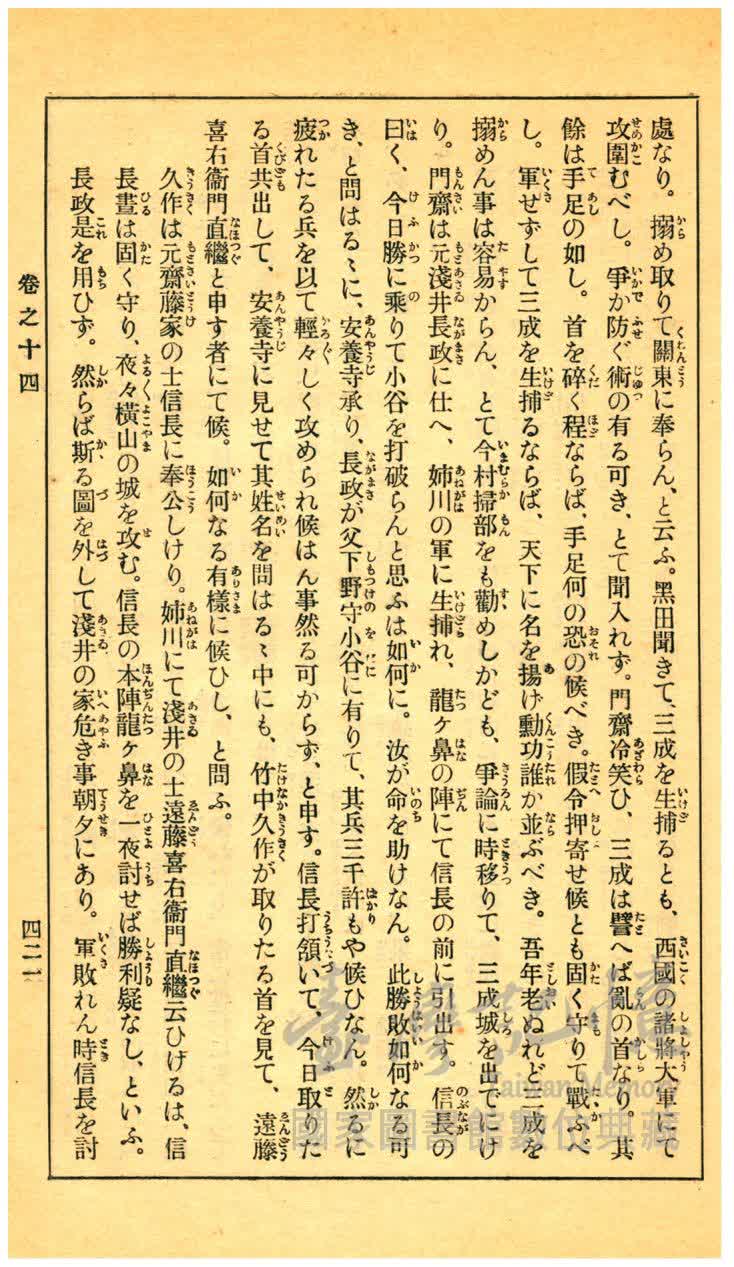 處なり。搦め取りて關東に奉らん、と云ふ。黑田聞きて、三成を生捕るとも、西國の諸將大軍にて
攻圍むべし。爭か防ぐ術の有る可き、とて聞入れず。門齋冷笑ひ、三成は譬へば亂の首なり。其
餘は手足の如し。首を碎く程ならば、手足何の恐の候べき。假令押寄せ候とも固く守りて戰ふべ
し。軍せずして三成を生捕るならば、天下に名を揚げ勳功誰か並ぶべき。吾年老ぬれど三成を
搦めん事は容易からん、とて今村掃部をも勸めしかども、爭論に時移りて、三成城を出でにけ
り。門齋は元淺井長政に仕へ、姉川の軍に生捕れ、龍ヶ鼻の陣にて信長の前に引出す。信長の
曰く、今日勝に乘りて小谷を打破らんと思ふは如何に。汝が命を助けなん。此勝敗如何なる可
き、と問はるゝに、安養寺承り、長政が父下野守小谷に有りて、其兵三千許もや候ひなん。然るに
疲れたる兵を以て輕々しく攻められ候はん事然る可からず、と申す。信長打頷いて、今日取りた
る首共出して、安養寺に見せて其姓名を問はるゝ中にも、竹中久作が取りたる首を見て、遠藤
喜右衞門直繼と申す者にて候。如何なる有樣に候ひし、と問ふ。
久作は元齋藤家の士信長に奉公しけり。姉川にて淺井の士遠藤喜右衞門直繼云ひけるは、信
長晝は固く守り、夜々橫山の城を攻む。信長の本陣龍ヶ鼻を一夜討せば勝利疑なし、といふ。
長政是を用ひず。然らば斯る圖を外して淺井の家危き事朝夕にあり。軍敗れん時信長を討
卷之十四
四二一
臺灣記憶
Taiwan Memory
國家圖書館數位典藏